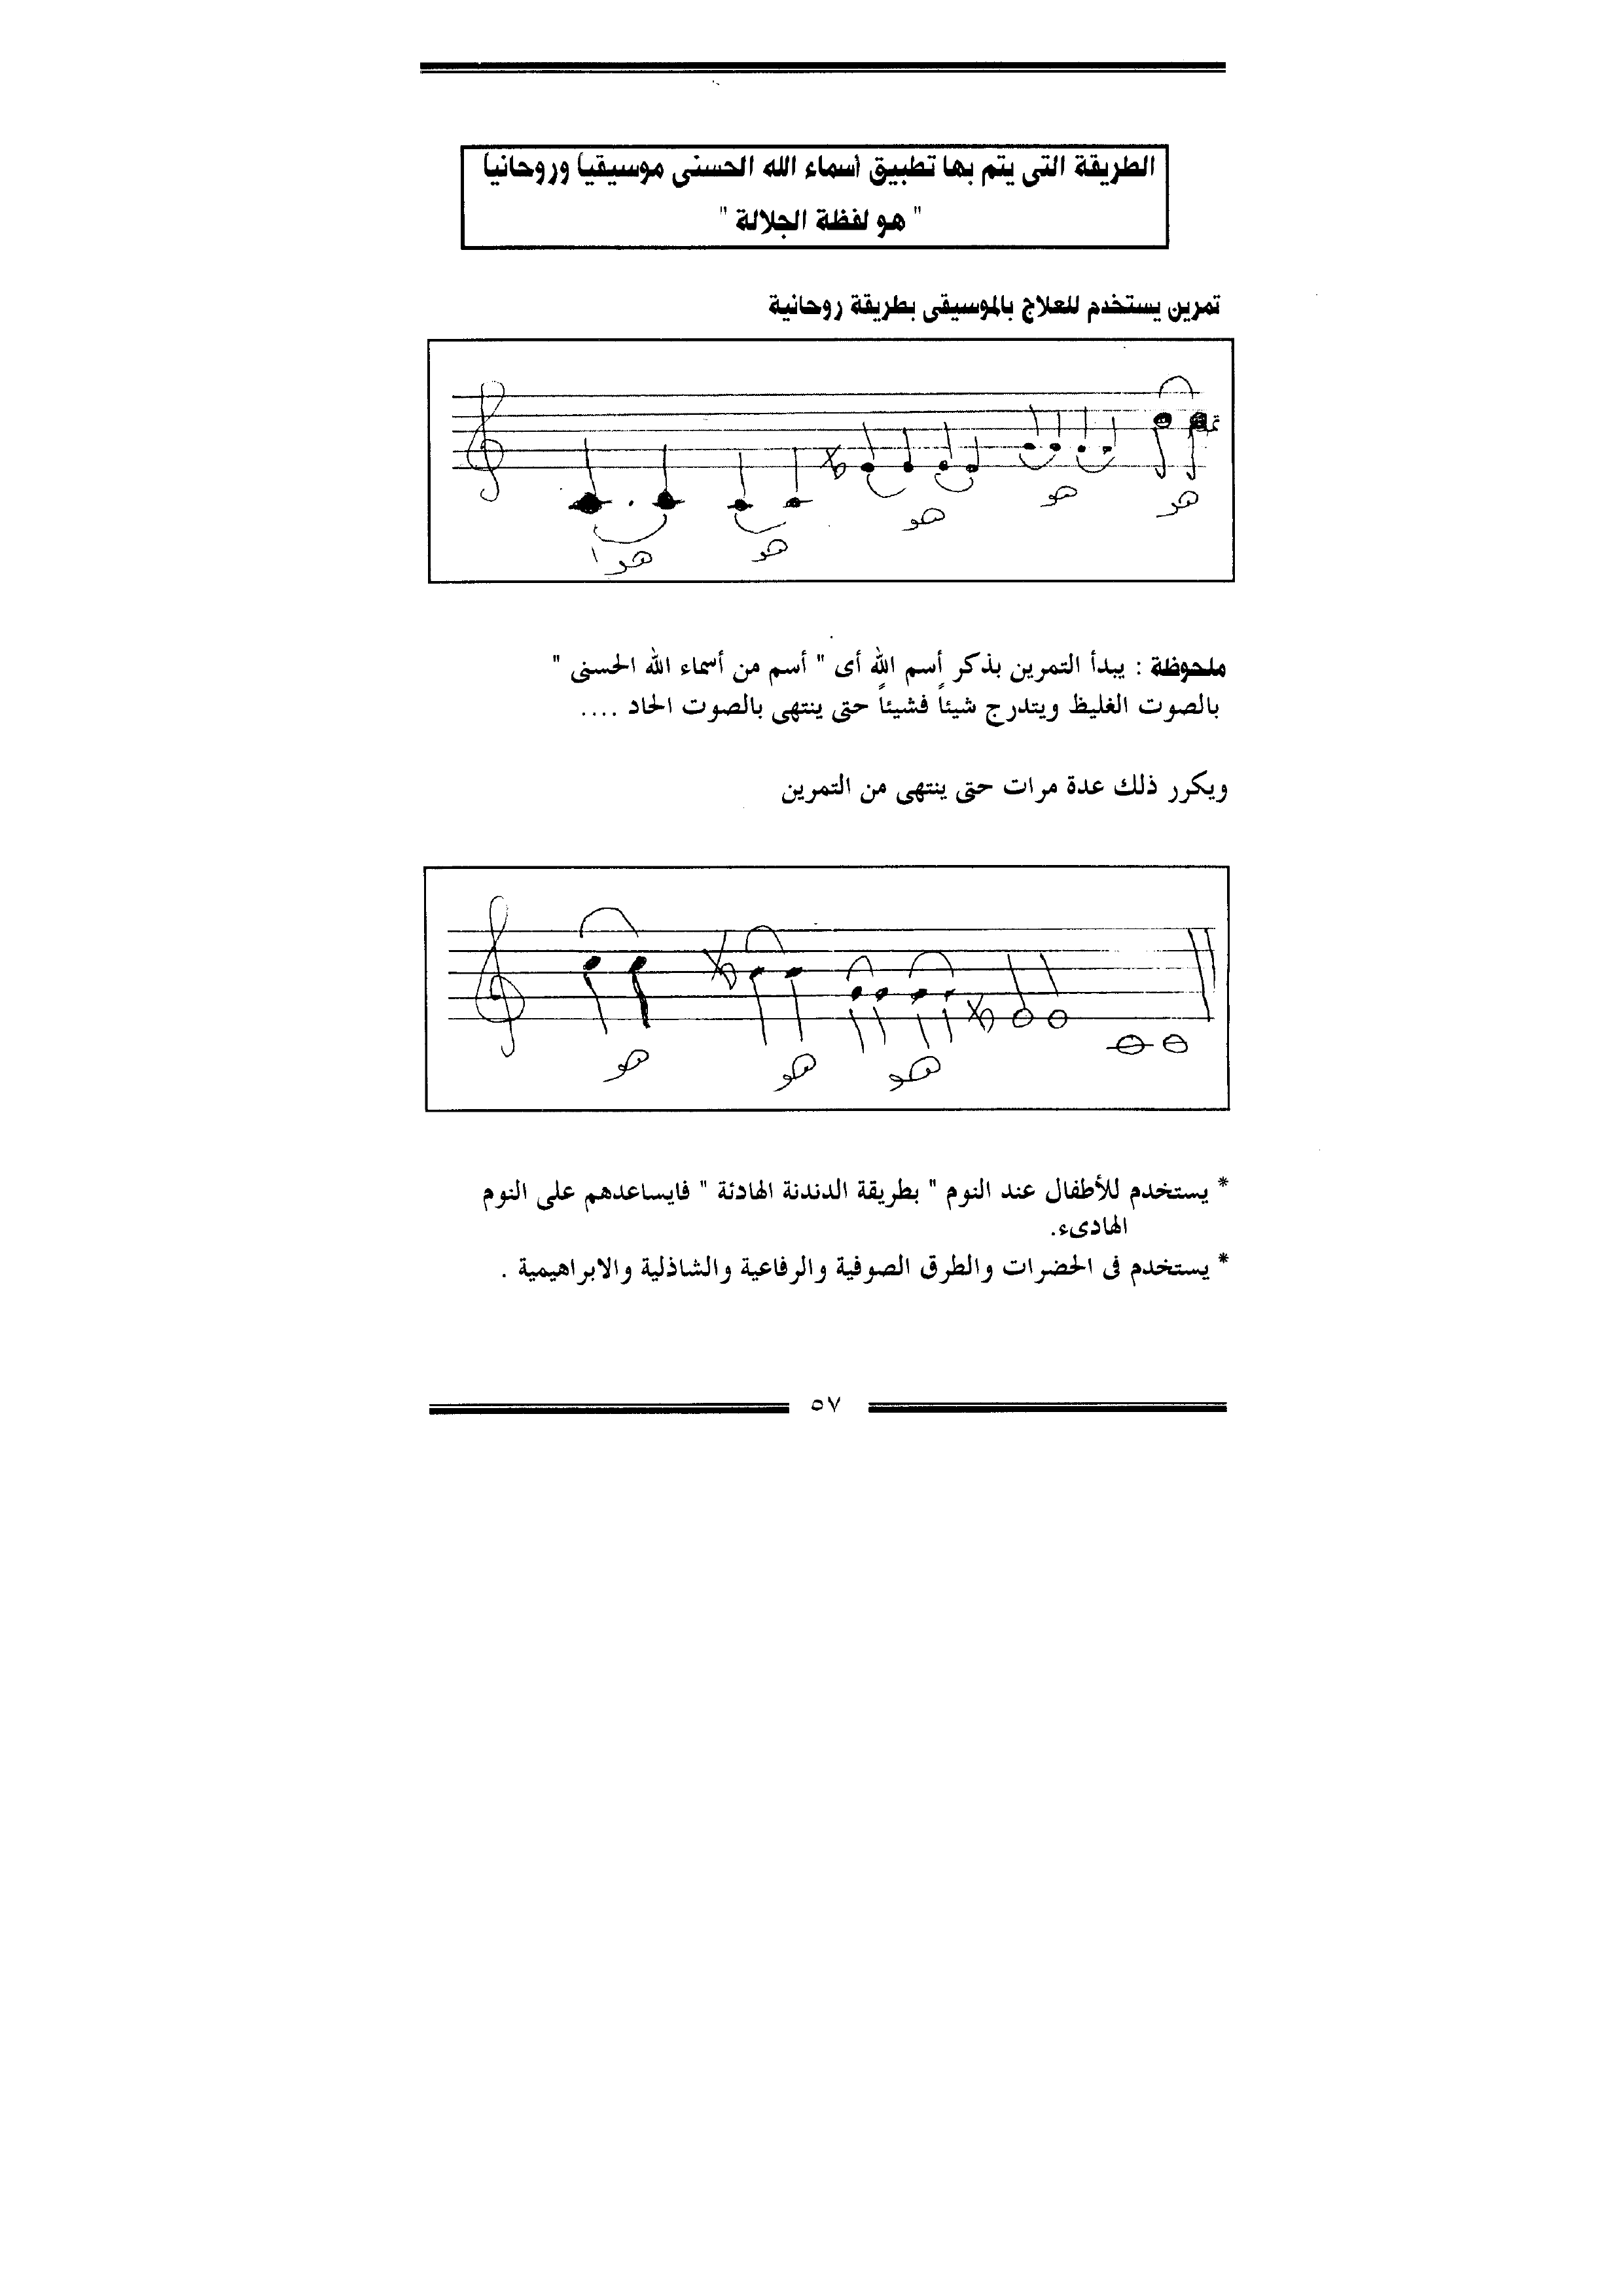 الطريقة التى يتم بها تطبيق أسماء الله الحسنى موسيقياً وروحانياً
" هو لفظة الجلالة "
تمرين يستخدم للعلاج بالموسيقى بطريقة روحانية
هو هو هو هو هو
ملحوظة : يبدأ التمرين بذكر أسم الله أى " أسم من أسماء الله الحسنى "
بالصوت الغليظ ويتدرج شيئاً فشيئاً حتى ينتهى بالصوت الحاد ....
ويكرر ذلك عدة مرات حتى ينتهى من التمرين
هو هو هو
* يستخدم للأطفال عند النوم " بطريقة الدندنة الهادئة " فايساعدهم على النوم
الهادىء.
* يستخدم فى الحضرات والطرق الصوفية والرفاعية والشاذلية والابراهيمية .
٥٧